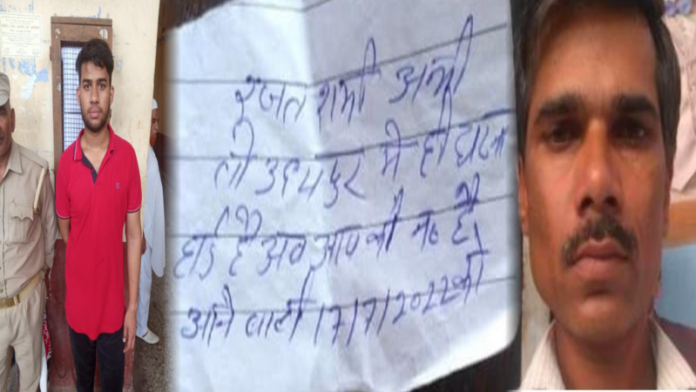 रजत शर्मा अभी
तो उदयपुर मे ही घटना
होई है अब आप की न० है
आने वाली 17/7/2022 को